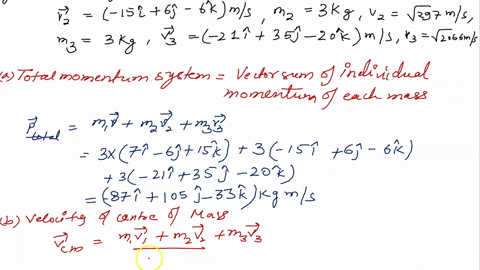 v⃗₂ = (-15î + 6ĵ - 6k̂) m/s, m₂ = 3 kg, v₂ = √297 m/s,
m₃ = 3 kg, v⃗₃ = (-21î + 35ĵ - 20k̂) m/s, v₃ = √2066 m/s
(a) Total momentum system = Vector sum of individual
momentum of each mass
P⃗total = m₁v⃗ + m₂v⃗₂ + m₃v⃗₃
= 3×(7î - 6ĵ + 15k̂) + 3(-15î + 6ĵ - 6k̂)
+ 3(-21î + 35ĵ - 20k̂)
= (-87î + 105ĵ - 33k̂) kg m/s
(b) Velocity of centre of Mass
v⃗cm = m₁v⃗₁ + m₂v⃗₂ + m₃v⃗₃